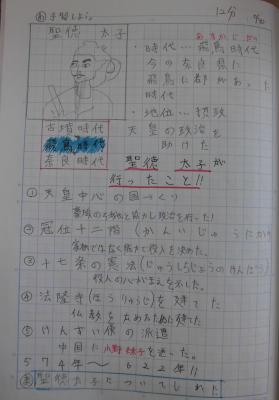 め 予習しよう。 12分
聖徳 太子
あすかじだい
・時代…飛鳥時代
今の奈良県に
飛鳥に都があった
時代
・地位…摂政
天皇の政治を
助けた
古墳時代
飛鳥時代
奈良時代
聖徳 太子が
行ったこと!!
① 天皇中心の国づくり
豪族の と協力し政治を行った!
② 冠位十二階(かんいじゅうにかい
家柄ではなく能力で役人を決めた。
③ 十七条の憲法(じゅうしちじょうのけんぽう)
役人の心がまえを示した。
④ 法隆寺(ほうりゅうじ)を建てた
仏教を ために建てた
⑤ けんずい使の派遣
中国に小野妹子を送った。
574年〜622年!!
ま 聖徳太子について